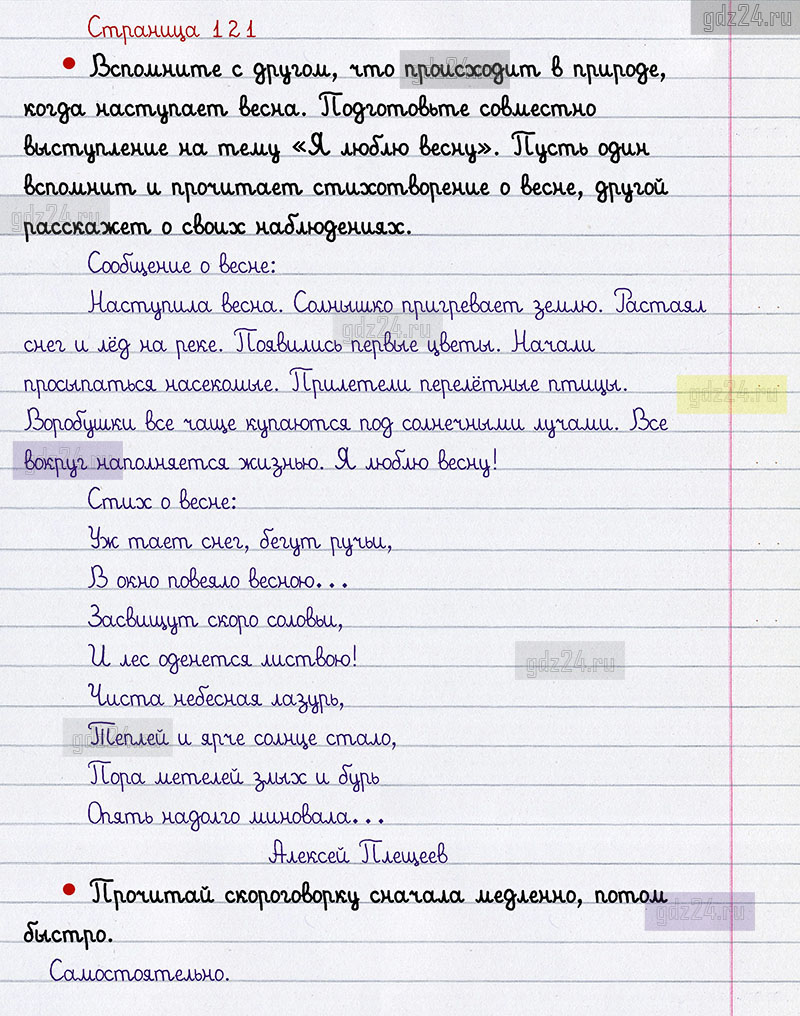 gdz24.ru
Страница 121
• Вспомните с другом, что происходит в природе,
когда наступает весна. Подготовьте совместно
выступление на тему «Я люблю весну». Пусть один
вспомнит и прочитает стихотворение о весне, другой
расскажет о своих наблюдениях.
Сообщение о весне:
Наступила весна. Солнышко пригревает землю. Растаял
снег и лёд на реке. Появились первые цветы. Начали
просыпаться насекомые. Прилетели перелётные птицы.
Воробушки все чаще купаются под солнечными лучами. Все
вокруг наполняется жизнью. Я люблю весну!
Стих о весне:
Уж тает снег, бегут ручьи,
В окно повеяло весною...
Засвищут скоро соловьи,
И лес оденется листвою!
Чиста небесная лазурь,
Теплей и ярче солнце стало,
Пора метелей злых и бурь
Опять надолго миновала...
Алексей Плещеев
• Прочитай скороговорку сначала медленно, потом
быстро.
Самостоятельно.
gdz24.ru
gdz24.ru
gdz24.ru
gdz24.ru
gdz24.ru
gdz24.ru
gdz24.ru
gdz24.ru